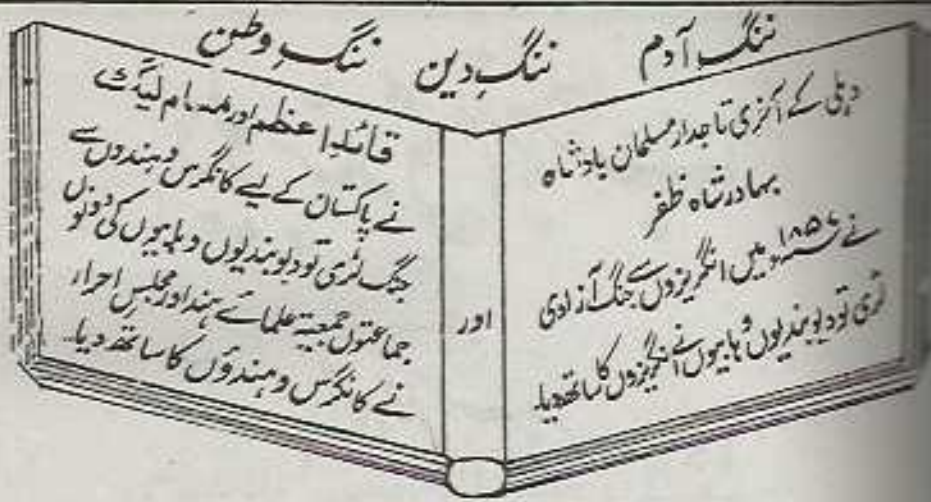 ننگِ آدم ننگِ دین ننگِ وطن
دہلی کے آخری تاجدار مسلمان بادشاہ
بہادر شاہ ظفر
نے ۱۸۵۷ء میں انگریزوں سے جنگ آزادی
لڑی تو دیوبندیوں وہابیوں نے انگریزوں کا ساتھ دیا۔
اور
قائدِ اعظم اور مسلم لیگ
نے پاکستان کے لیے کانگرس و ہندوں سے
جنگ لڑی تو دیوبندیوں وہابیوں کی دونوں
جماعتوں جمعیۃ علمائے ہند اور مجلسِ احرار
نے کانگرس و ہندوؤں کا ساتھ دیا۔